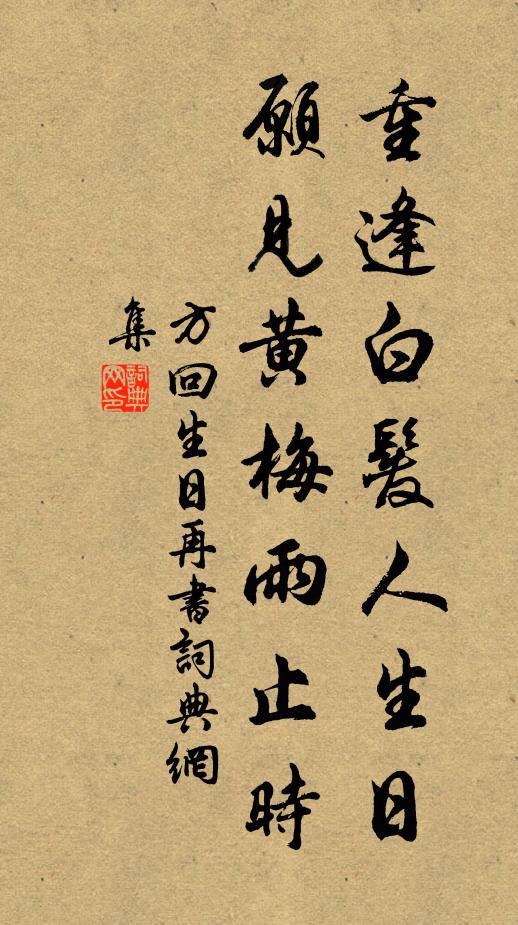 重逢白髮人生日
願見黃梅雨止時
方回生日再書詞典網
集
詞典
网印